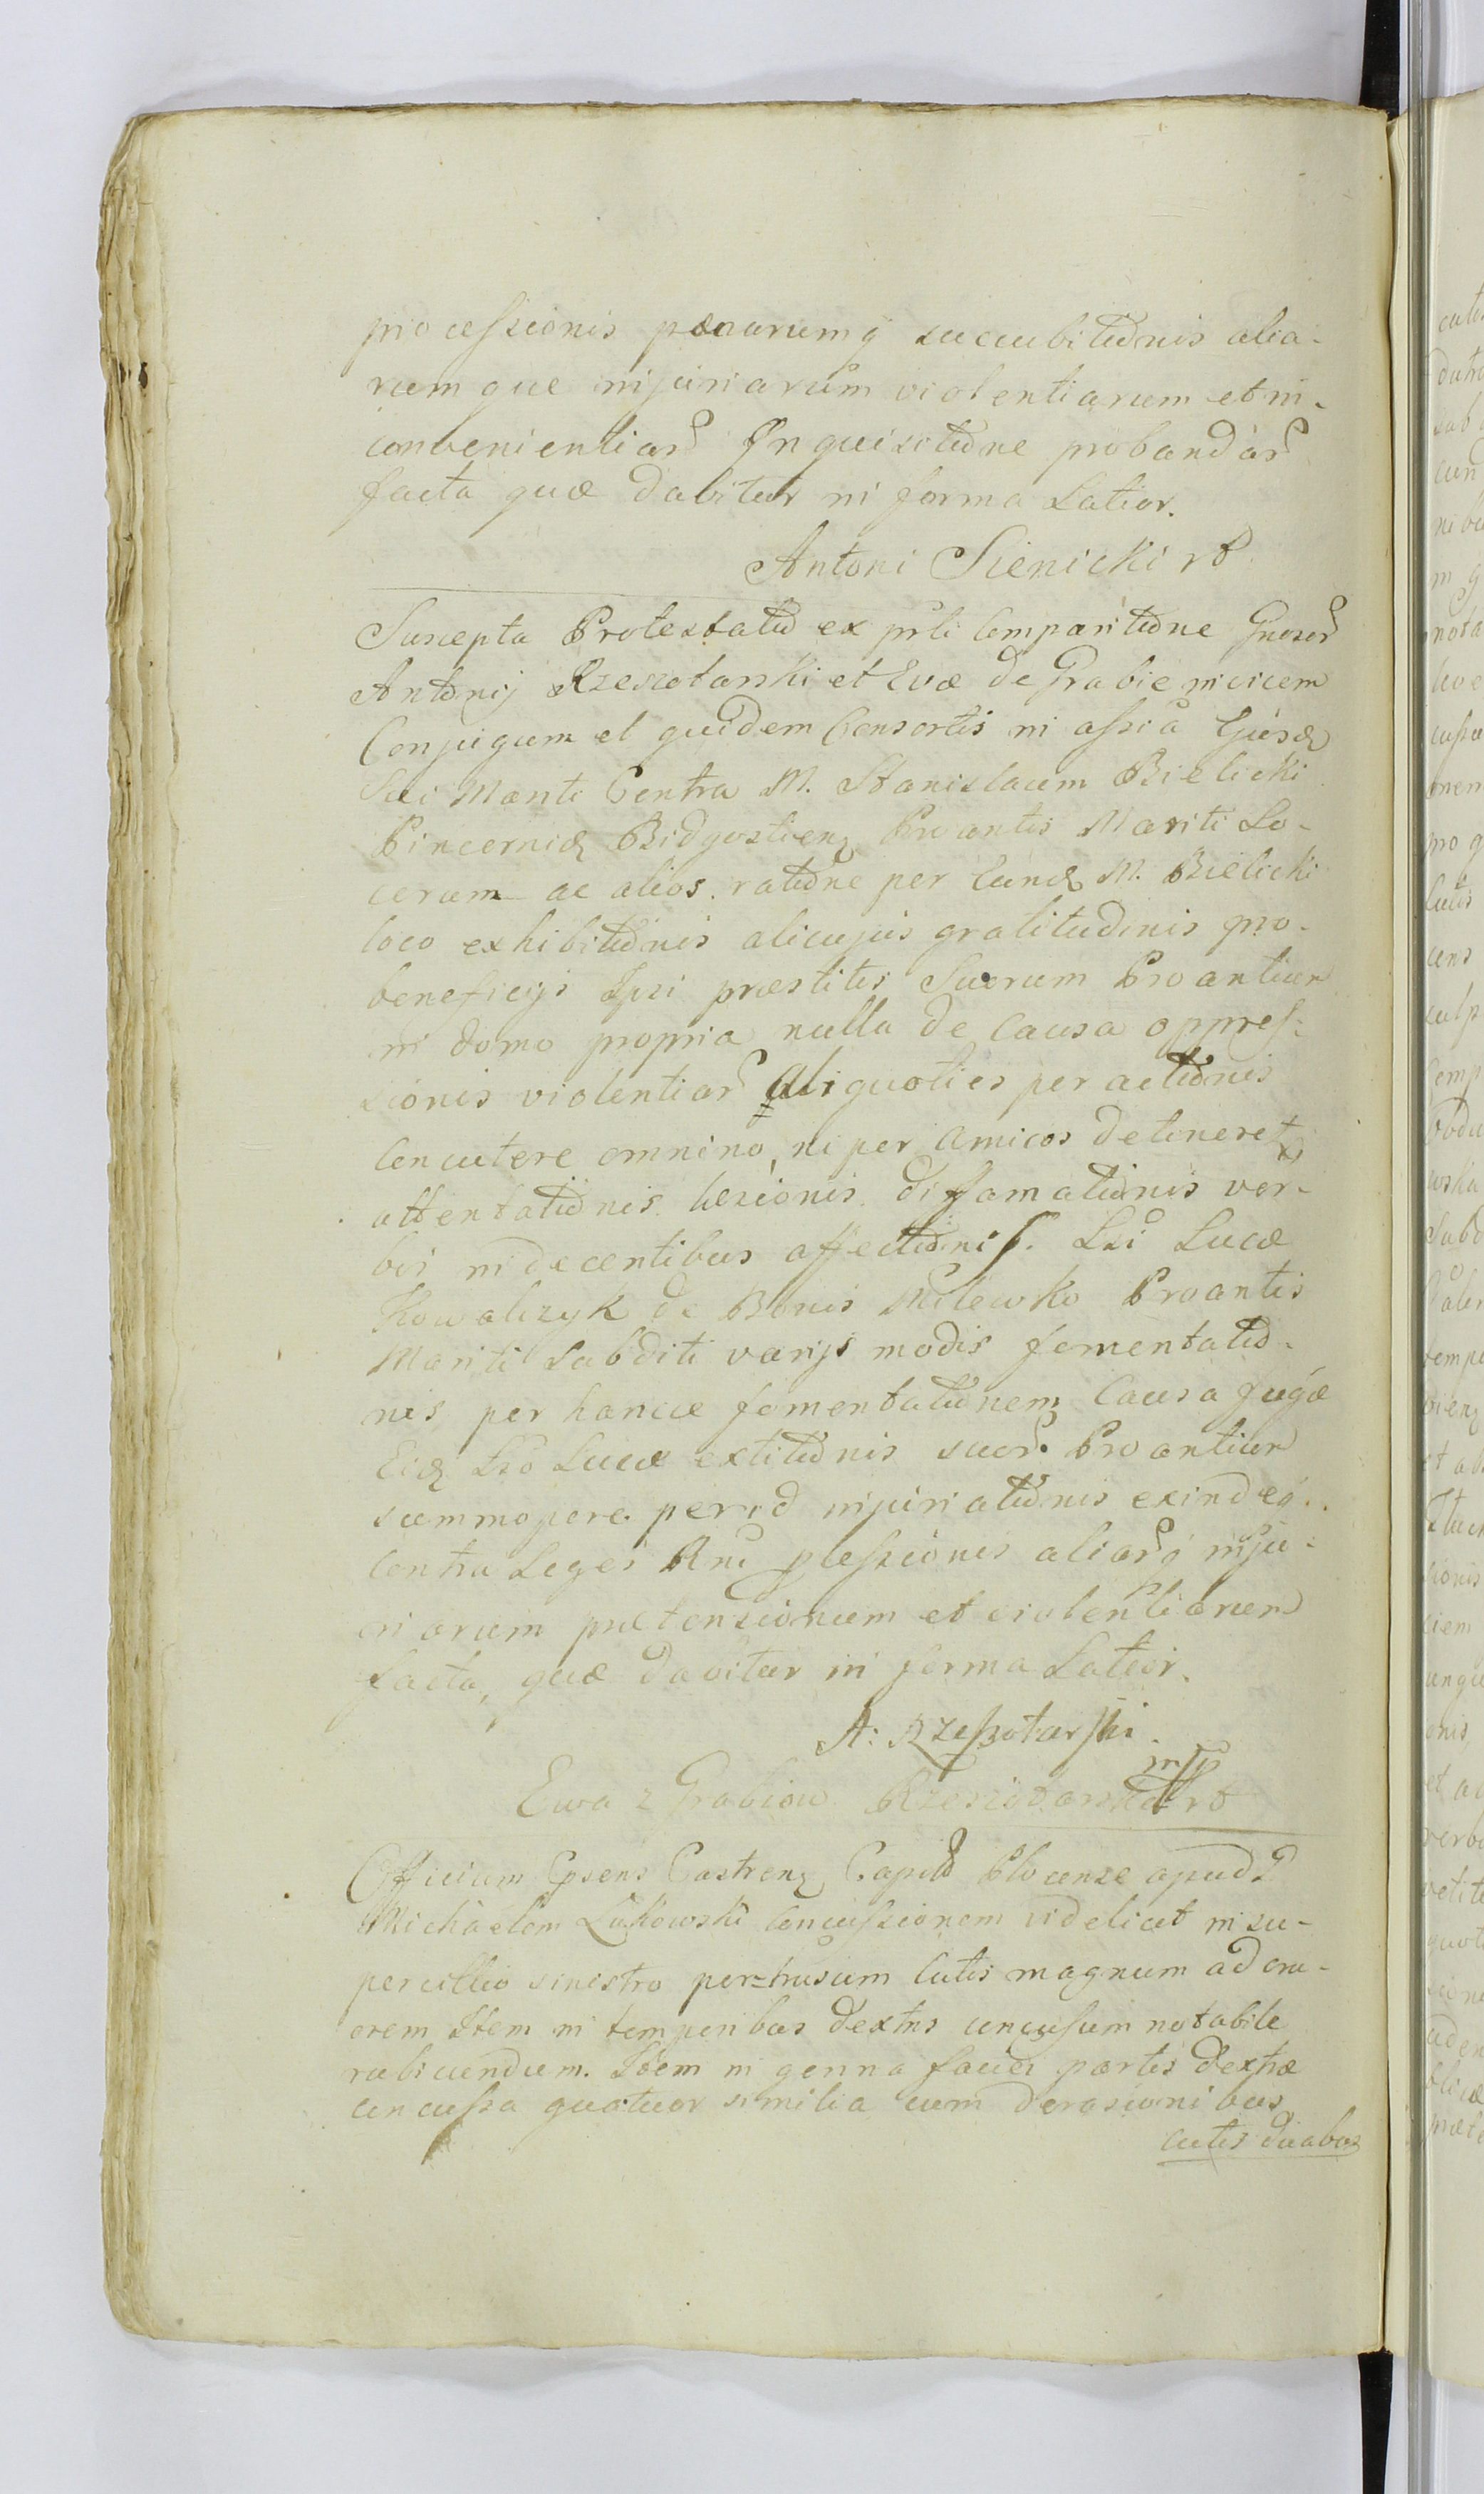 processionis pœnarumq succubitionis alia-
rumque injuriarum violentiarum et in-
convenientiar Inquisitione probandar
facta quæ dabitur in forma Latior.
Antoni Sienicki rt
Suscepta Protestatio ex prli Comparitione Gnosor
Antonij Rzeszotarski et Evæ de Grabie invicem
Conjugum et quidem Consortis in assia
Sui Mariti Contra M. Stanislaum Bielicki
Pincernid Bidgostien Proantis Mariti So-
cerum ac alios ratione per Eund M. Bielicki
loco exhibitionis alicujus gratitudinis pro
beneficijs Ipsi præstitis Suorum Proantium
in domo propria nulla de Causa oppres-
sionis violentiar aliquoties peractionis
Concutere omnino, ni per amicos detineret
attentationis læsionis diffamationis ver-
bis indecentibus affectionis. Lsi Lucæ
Kowalczyk de Bonis Milewko Proantis
Mariti Subditi varijs modis fomentatio-
nis, per hancce fomentationem Causa fugæ
Eid Lso Lucæ extitionis suor Proantium
summopere injuriationis exinde
Contra Leges Rni plessionis aliarq inju-
riarum prætensionum et violentiarum
facta, quæ dabitur in forma Latior.
A: Rzeszotarski
mp
Ewa z Grabiow Rzeszotarska rt
Officium Castren Capit Plocense apud
Michaelem Lukowski Concussionem videlicet in su-
percillio sinistro pertrusum cutis magnum ad cru-
orem Item in temporibus dextris concussum notabile
rubicundum. Idem in genna faciei partis dextræ
concussa quatuor similia cum derasionibus
cutis duabus